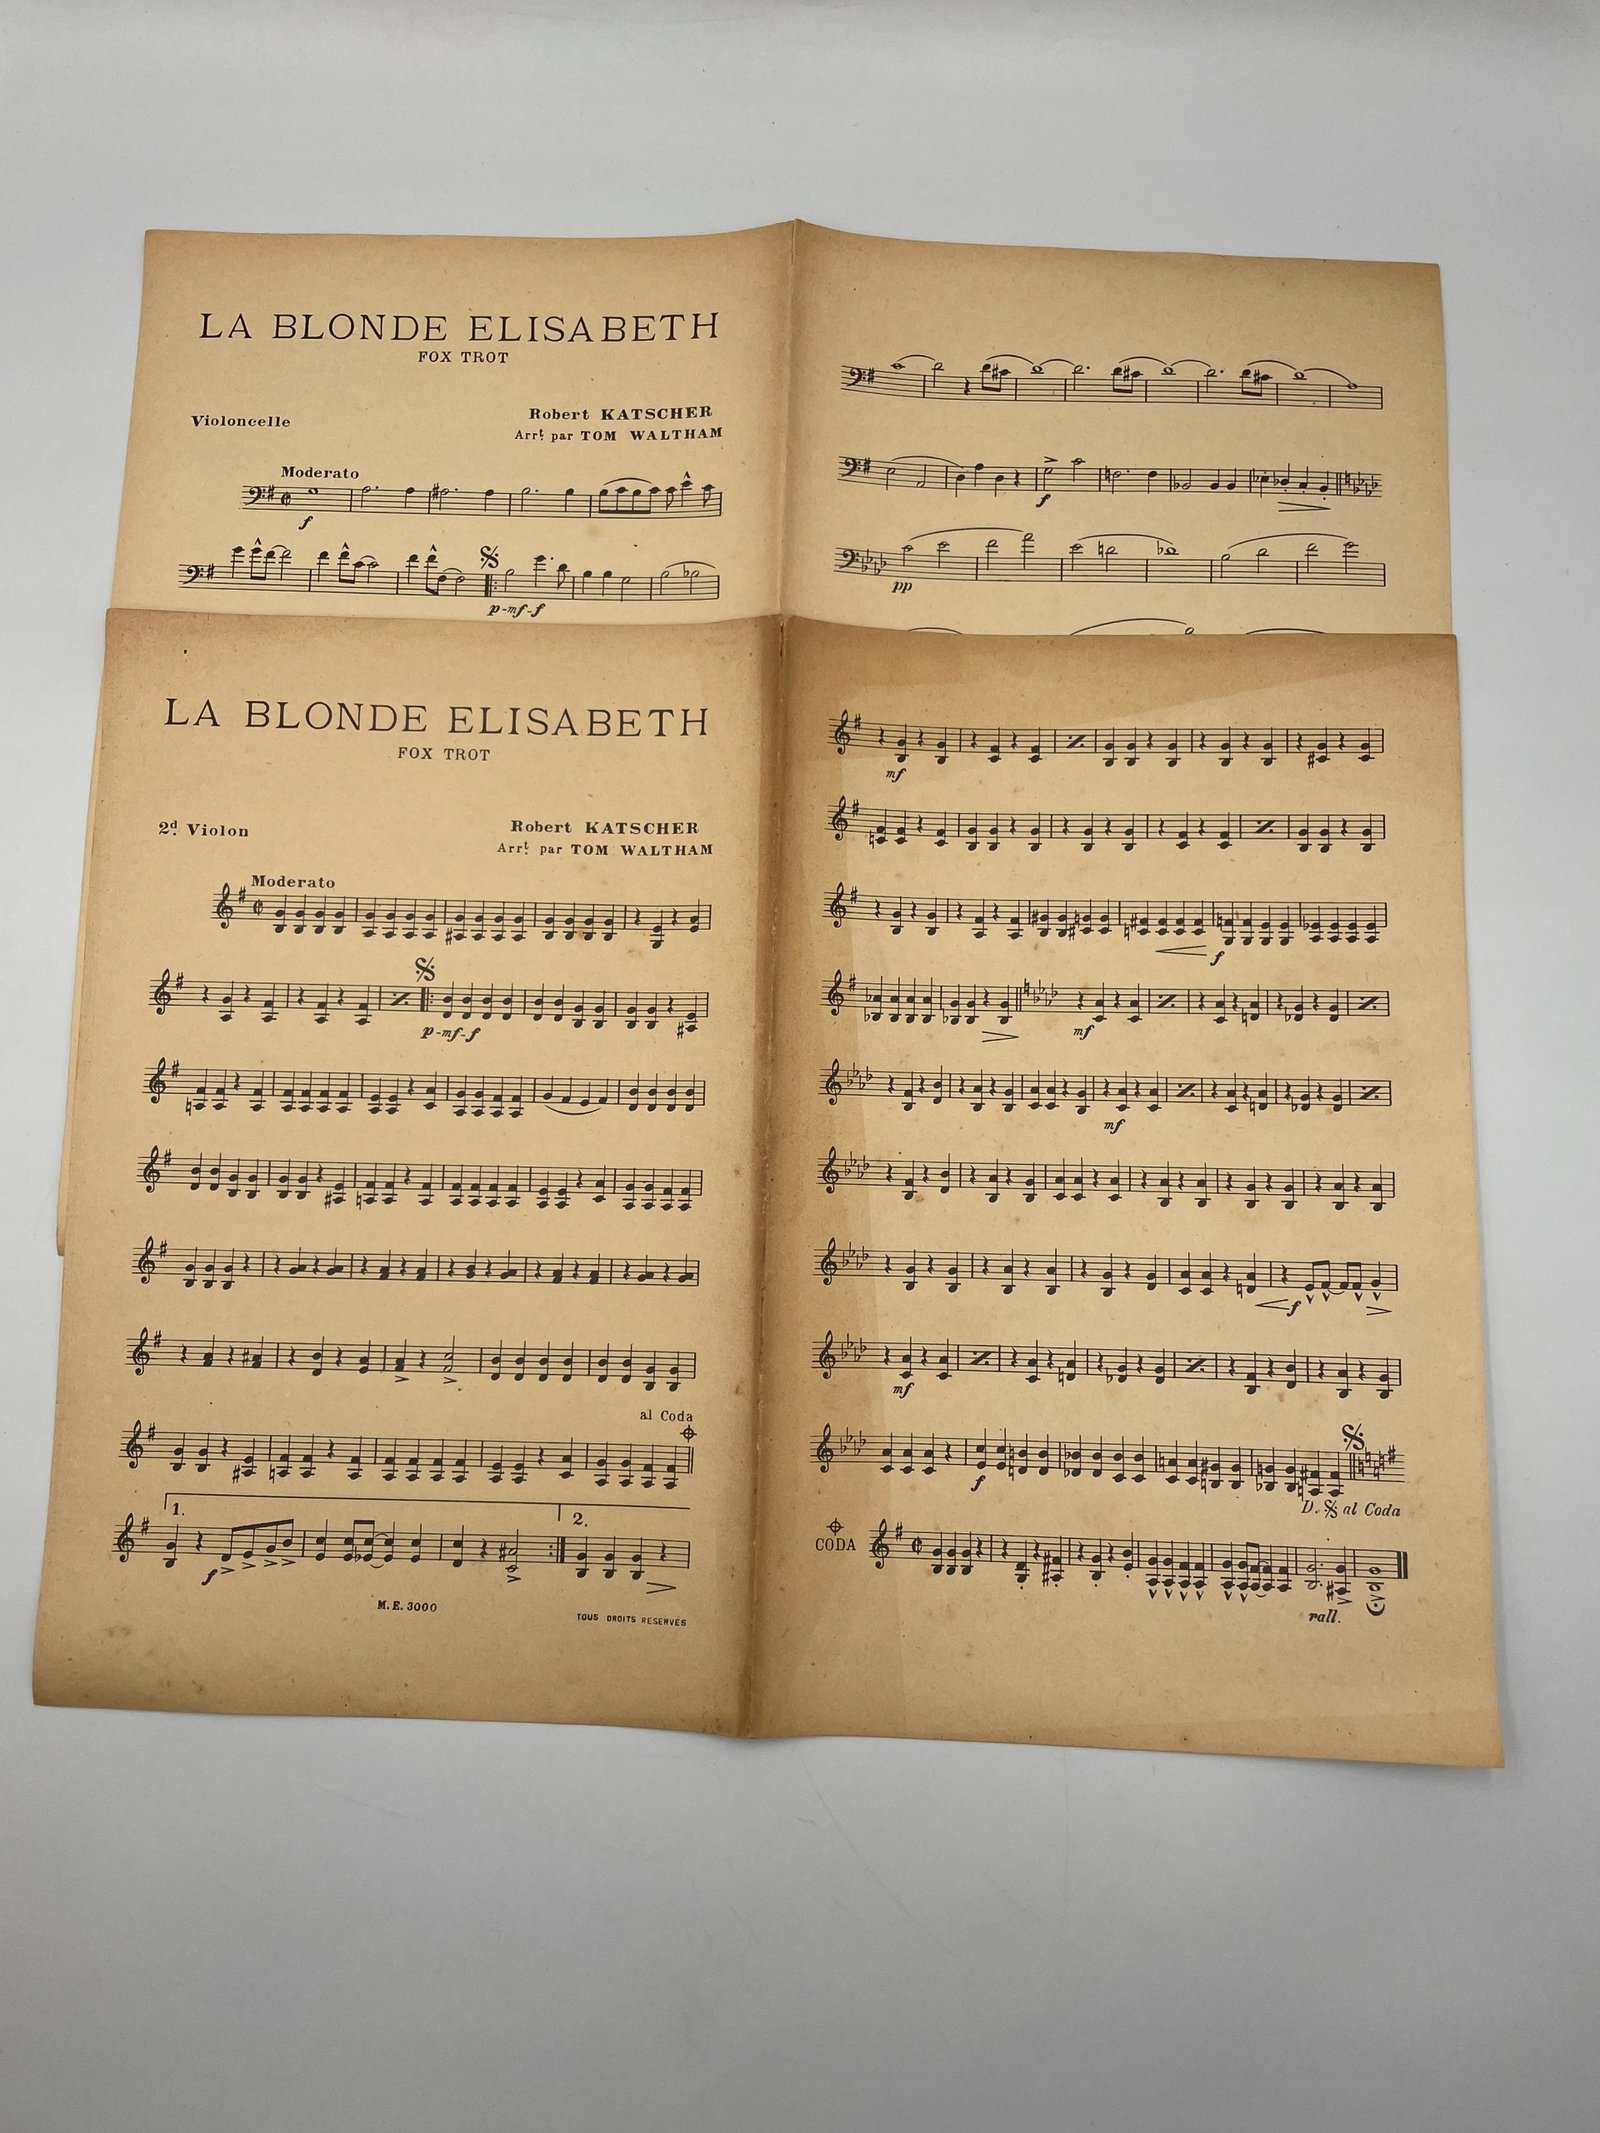 LA BLONDE ELISABETH
FOX TROT
Violoncelle
Robert KATSCHER
Arrt. par TOM WALTHAM
Moderato
f
p-mf-f
f
pp
LA BLONDE ELISABETH
FOX TROT
2d. Violon
Robert KATSCHER
Arrt. par TOM WALTHAM
Moderato
p-mf-f
al Coda
1.
2.
f
M.E. 3000
TOUS DROITS RESERVÉS
mf
f
mf
mf
f
mf
f
D. S. al Coda
CODA
rall.